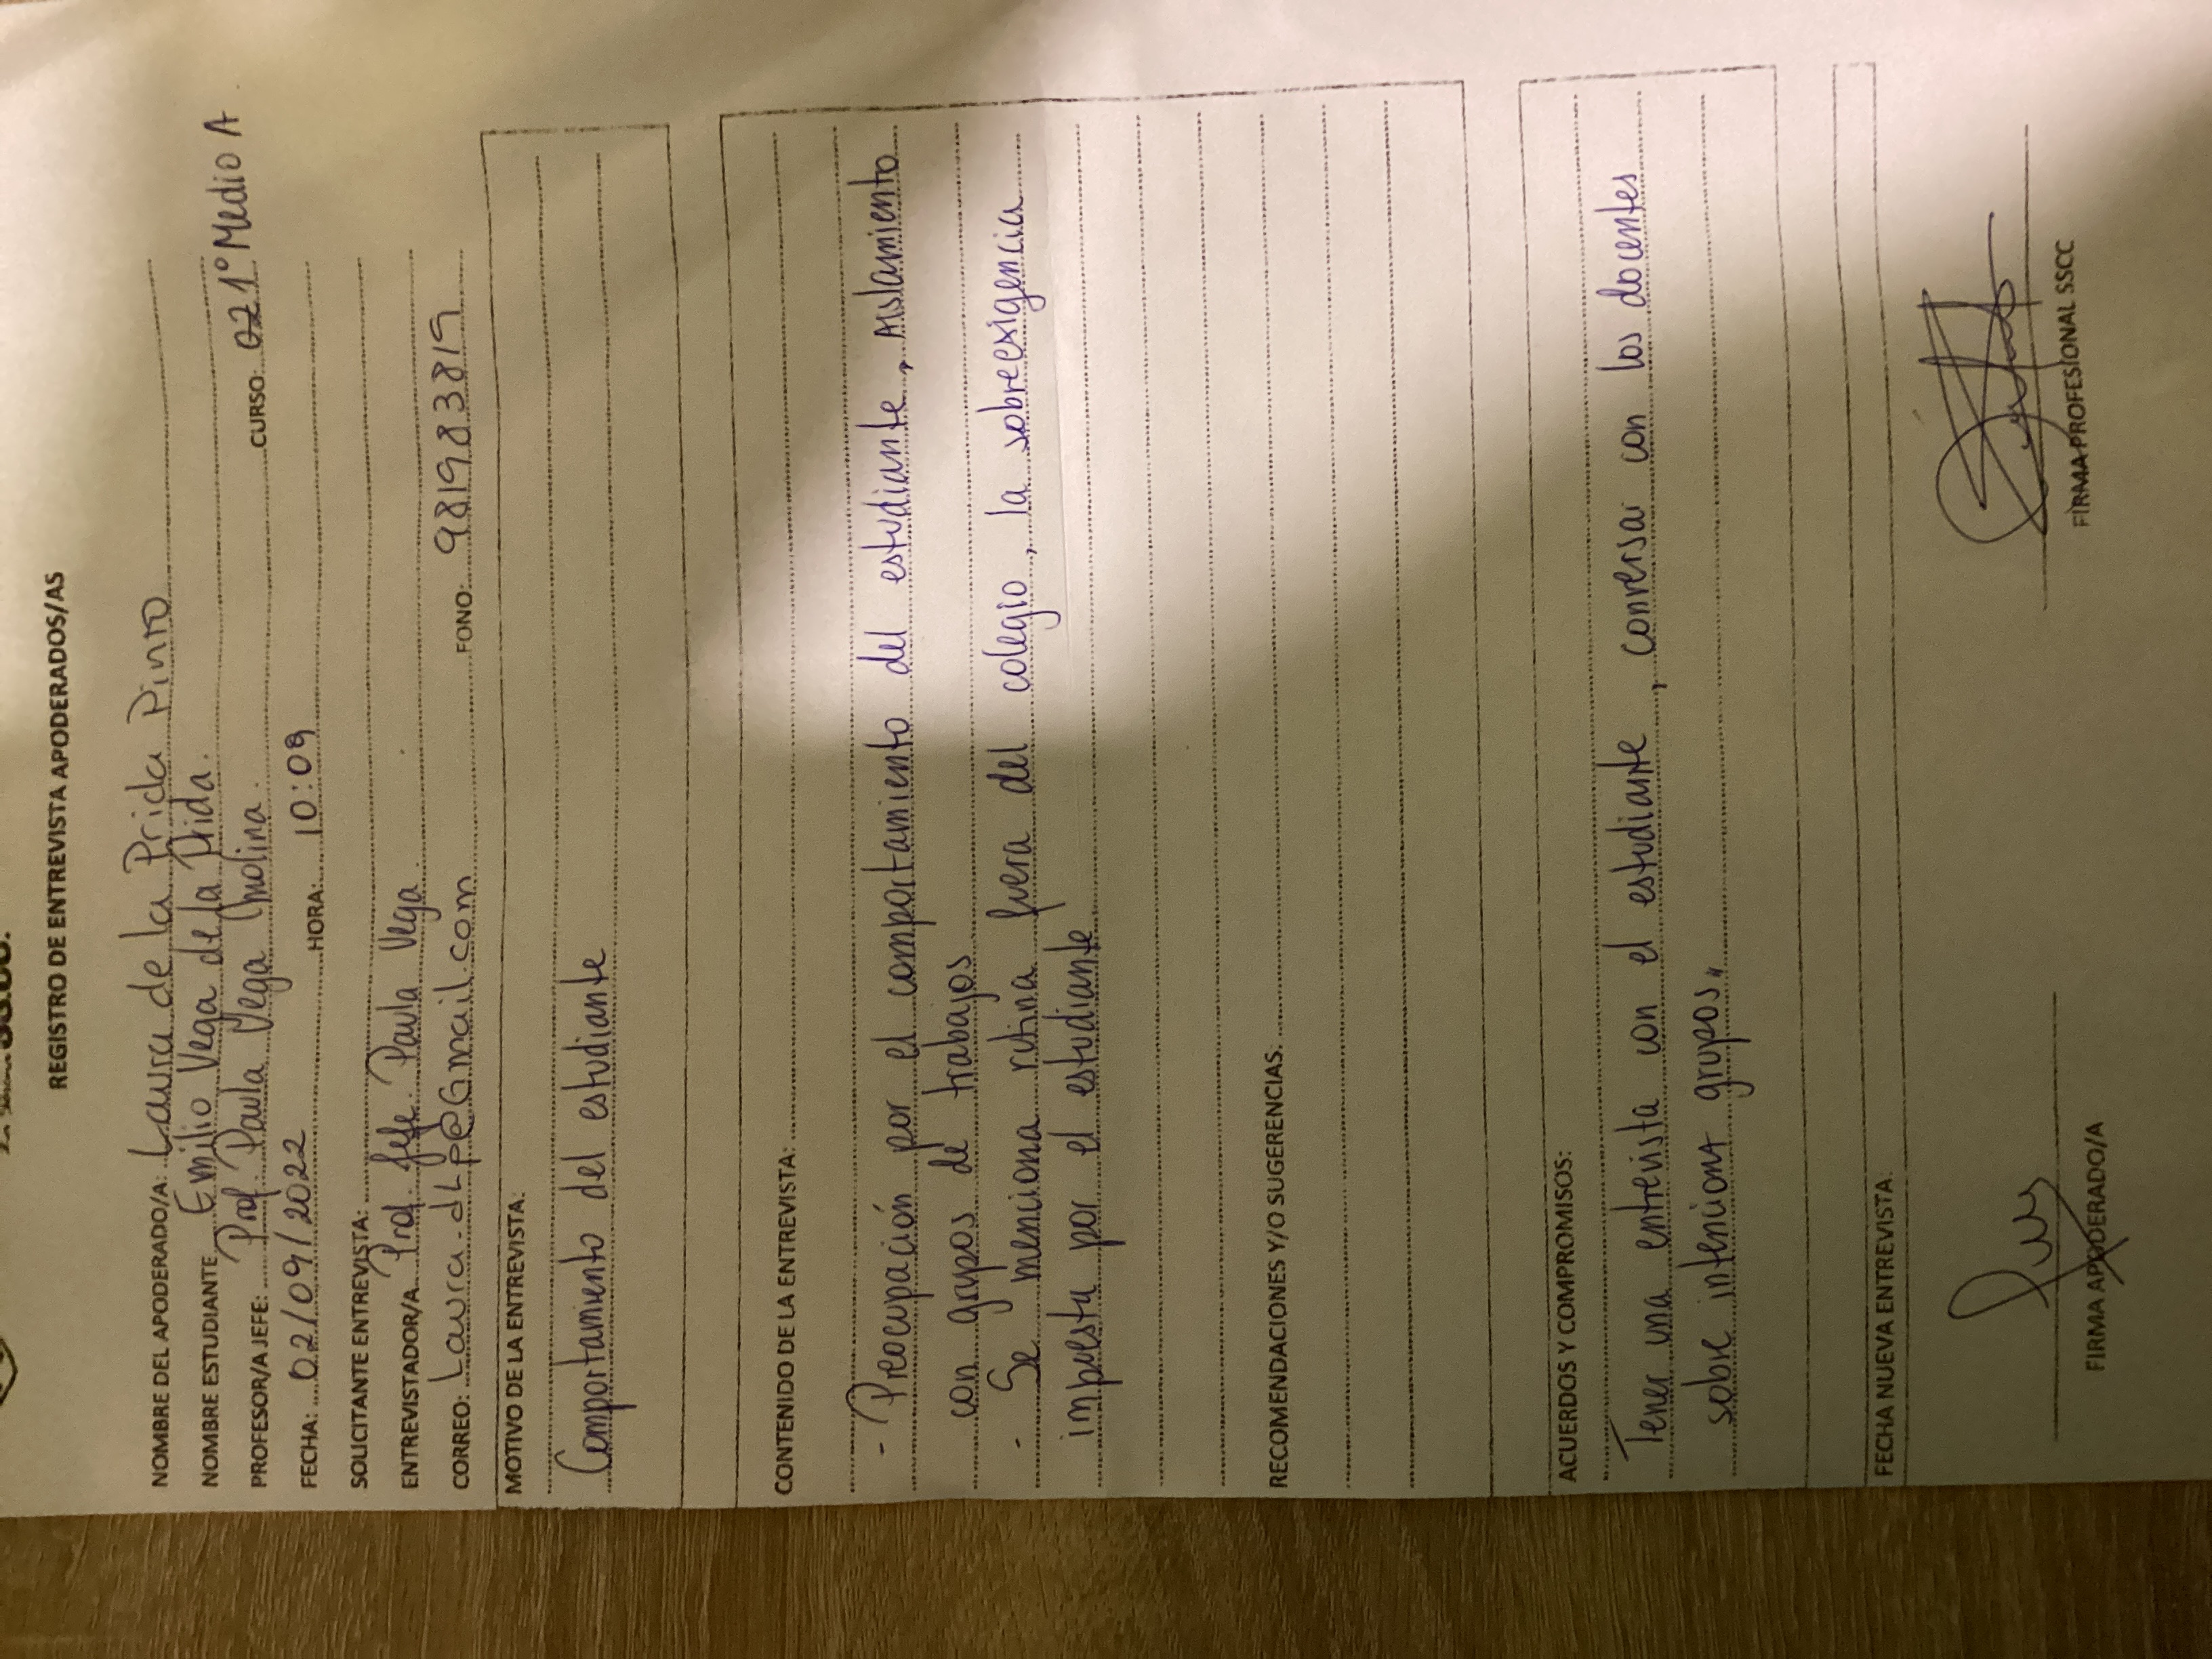 REGISTRO DE ENTREVISTA APODERADOS/AS
NOMBRE DEL APODERADO/A: Laura de la Prida Pinto
NOMBRE ESTUDIANTE Emilio Vega de la Prida.
PROFESOR/A JEFE: Prof. Paula Vega Molina. CURSO: 1º Medio A
FECHA: 02/09/2022 HORA: 10:09
SOLICITANTE ENTREVISTA:
ENTREVISTADOR/A. Prof. Jefe. Paula Vega.
CORREO: Laura.dLp@Gmail.com FONO: 981983819
MOTIVO DE LA ENTREVISTA:
Comportamiento del estudiante
CONTENIDO DE LA ENTREVISTA:
- Preocupación por el comportamiento del estudiante, Aislamiento
con grupos de trabajos
- Se menciona rutina fuera del colegio, la sobreexigencia
impuesta por el estudiante
RECOMENDACIONES Y/O SUGERENCIAS.
ACUERDOS Y COMPROMISOS:
Tener una entrevista con el estudiante, conversar con los docentes
sobre intencionar grupos.
FECHA NUEVA ENTREVISTA:
FIRMA APODERADO/A FIRMA PROFESIONAL SSCC